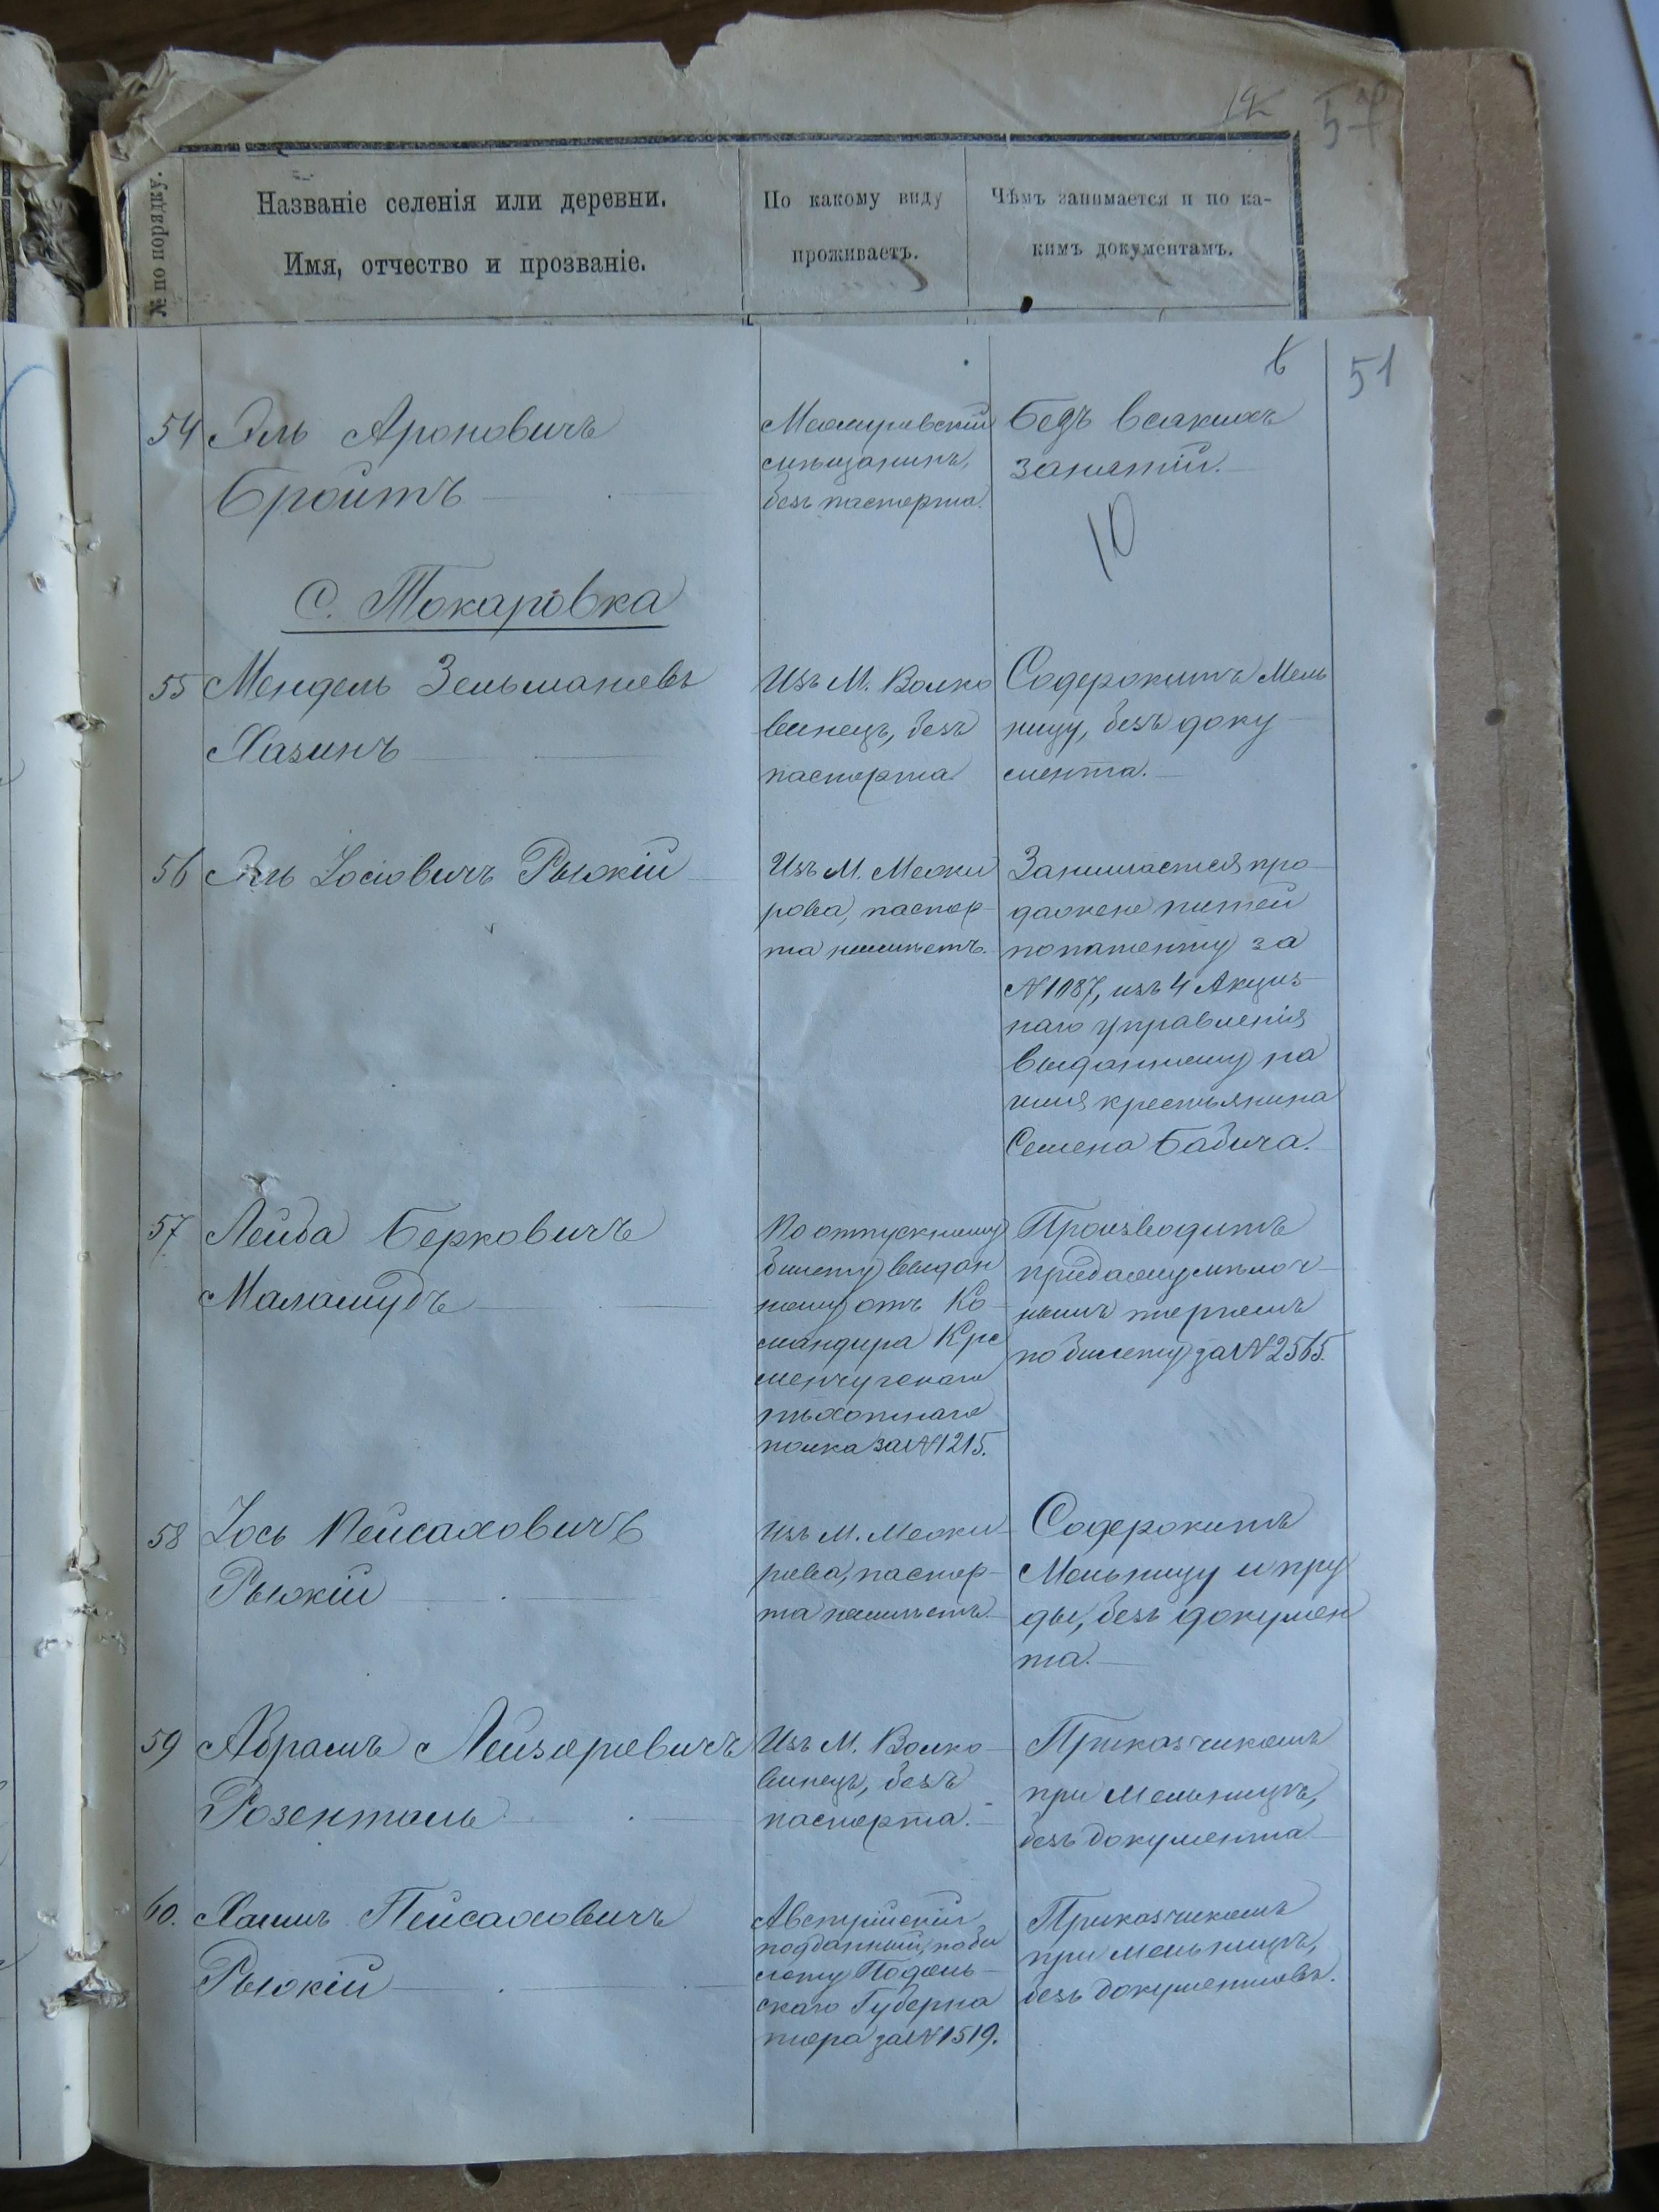 12
57
№ по порядку.
Названіе селенія или деревни.
Имя, отчество и прозваніе.
По какому виду
проживаетъ.
Чѣмъ занимается и по ка-
кимъ документамъ.
51
54 Эль Ароновичъ
Бройтъ
мѣщанинъ,
безъ паспорта.
Безъ всякихъ
занятій.
10
С. Токаровка
55 Мендель Зельмановъ
Хазинъ
Изъ М. Волко
винецъ, безъ
паспорта
Содержитъ Мель
ницу, безъ доку
мента.
56 Эль Іосіовичъ Рыжкій
Изъ М. Межи
рова, паспор-
та неимѣетъ.
Занимается про-
дажею питей
попатенту за
№1087, изъ 4 Акциз-
наго управленія
выданному на
имя крестьянина
Семена Бабича.
57 Лейба Берковичъ
Маламудъ
По отпускному
билету выдан
ному отъ Ко
мандира Кре
менчугскаго
пѣхотнаго
полка за №1215.
Производитъ
мѣлоч-
нымъ торгомъ
по билету за №2565.
58 Іось Пейсаховичъ
Рыжкій
Изъ М. Межи-
рова, паспор-
та неимѣетъ.
Содержитъ
Мельницу и пру
ды, безъ докумен
та.
59 Абрамъ Лейзоровичъ
Розенталь
Изъ М. Волко-
винецъ, безъ
паспорта.
Приказчикомъ
при Мельницѣ,
безъ документа
60. Хаимъ Пейсаховичъ
Рыжкій
Австрійскій
подданный, по би
лету Подоль-
скаго Губерна
тора за №1519.
Приказчикомъ
при Мельницѣ,
безъ документовъ.